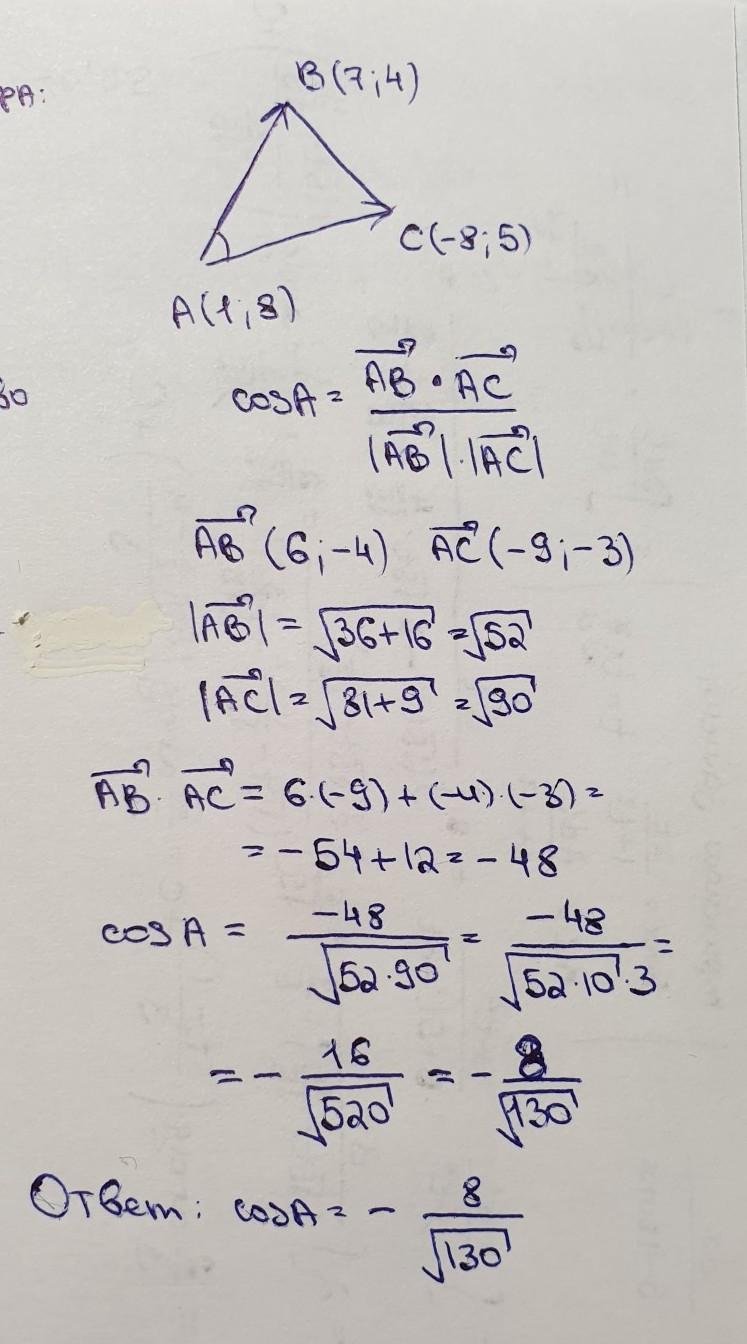 РА:
B(7;4)
C(-8;5)
A(1;8)
во
cosA = (AB⃗ · AC⃗) / (|AB⃗|·|AC⃗|)
AB⃗ (6;-4) AC⃗ (-9;-3)
|AB⃗| = √(36+16) = √52
|AC⃗| = √(81+9) = √90
AB⃗ · AC⃗ = 6·(-9)+(-4)·(-3)=
= -54+12 = -48
cosA = -48/√(52·90) = -48/(√(52·10)·3) =
= - 16/√520 = - 8/√130
Ответ: cosA = - 8/√130